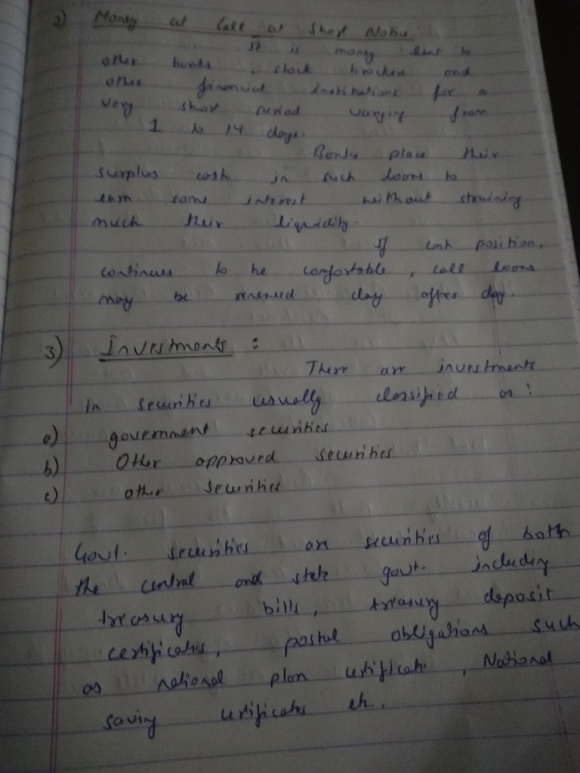 2) Money at Call at Short Notice :
It is money lent to
other banks, stock brokers and
other financial institutions for a
very short period varying from
1 to 14 days.
Banks place their
surplus cash in such loans to
earn some interest without straining
much their liquidity.
If cash position,
continues to be comfortable, call loans
may be renewed day after day.
3) Investments :
There are investments
in securities usually classified as :
a) government securities
b) Other approved securities
c) other securities
Govt. securities are securities of both
the central and state govt. including
treasury bills, treasury deposit
certificates, postal obligations such
as national plan certificate, National
saving certificates etc.